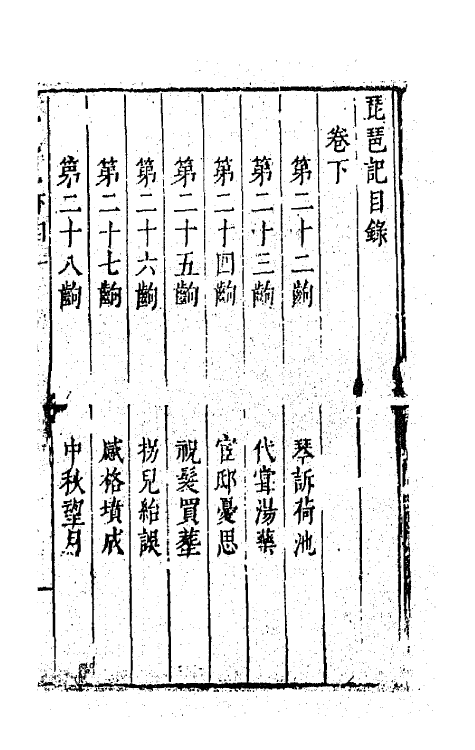 琵琶記目錄
卷下
第二十二齣 琴訴荷池
第二十三齣 代嘗湯藥
第二十四齣 宦邸憂思
第二十五齣 祝髮買葬
第二十六齣 拐兒紿誤
第二十七齣 感格墳成
第二十八齣 中秋望月